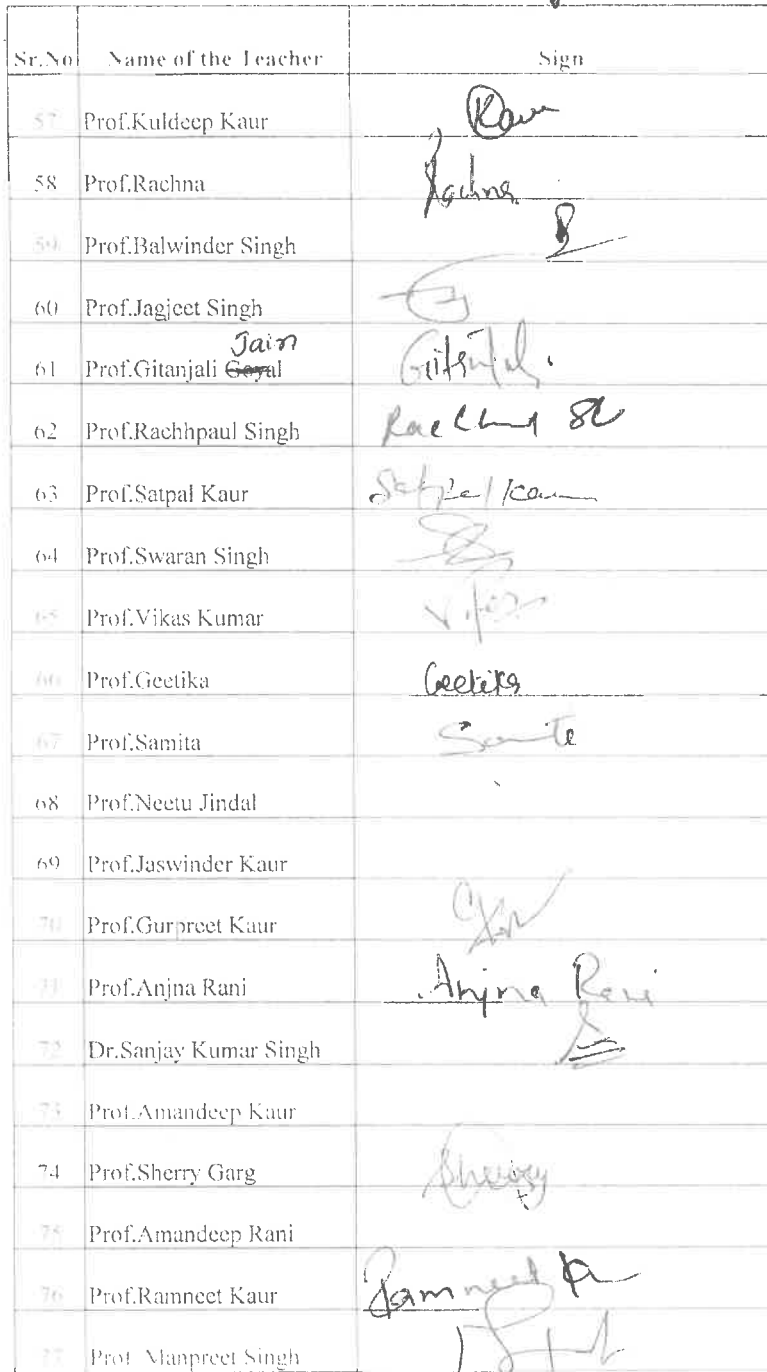 Sr.No Name of the Teacher Sign
57 Prof.Kuldeep Kaur Kaur
58 Prof.Rachna Rachna
59 Prof.Balwinder Singh
60 Prof.Jagjeet Singh
Jain
61 Prof.Gitanjali Goyal Gitanjali
62 Prof.Rachhpaul Singh
63 Prof.Satpal Kaur Satpal Kaur
64 Prof.Swaran Singh
65 Prof.Vikas Kumar
66 Prof.Geetika Geetika
67 Prof.Samita Samita
68 Prof.Neetu Jindal
69 Prof.Jaswinder Kaur
70 Prof.Gurpreet Kaur
71 Prof.Anjna Rani Anjna Rani
72 Dr.Sanjay Kumar Singh
73 Prof.Amandeep Kaur
74 Prof.Sherry Garg Sherry
75 Prof.Amandeep Rani
76 Prof.Ramneet Kaur Ramneet
77 Prof.Manpreet Singh